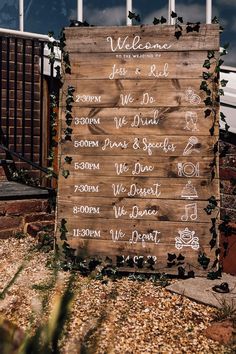 Welcome
TO THE WEDDING OF
Jess & Rick
2:30PM We Do
2:30PM We Drink
5:00PM Puns & Speeches
5:30PM We Dine
7:30PM We Dessert
8:00PM We Dance
11:30PM We Depart